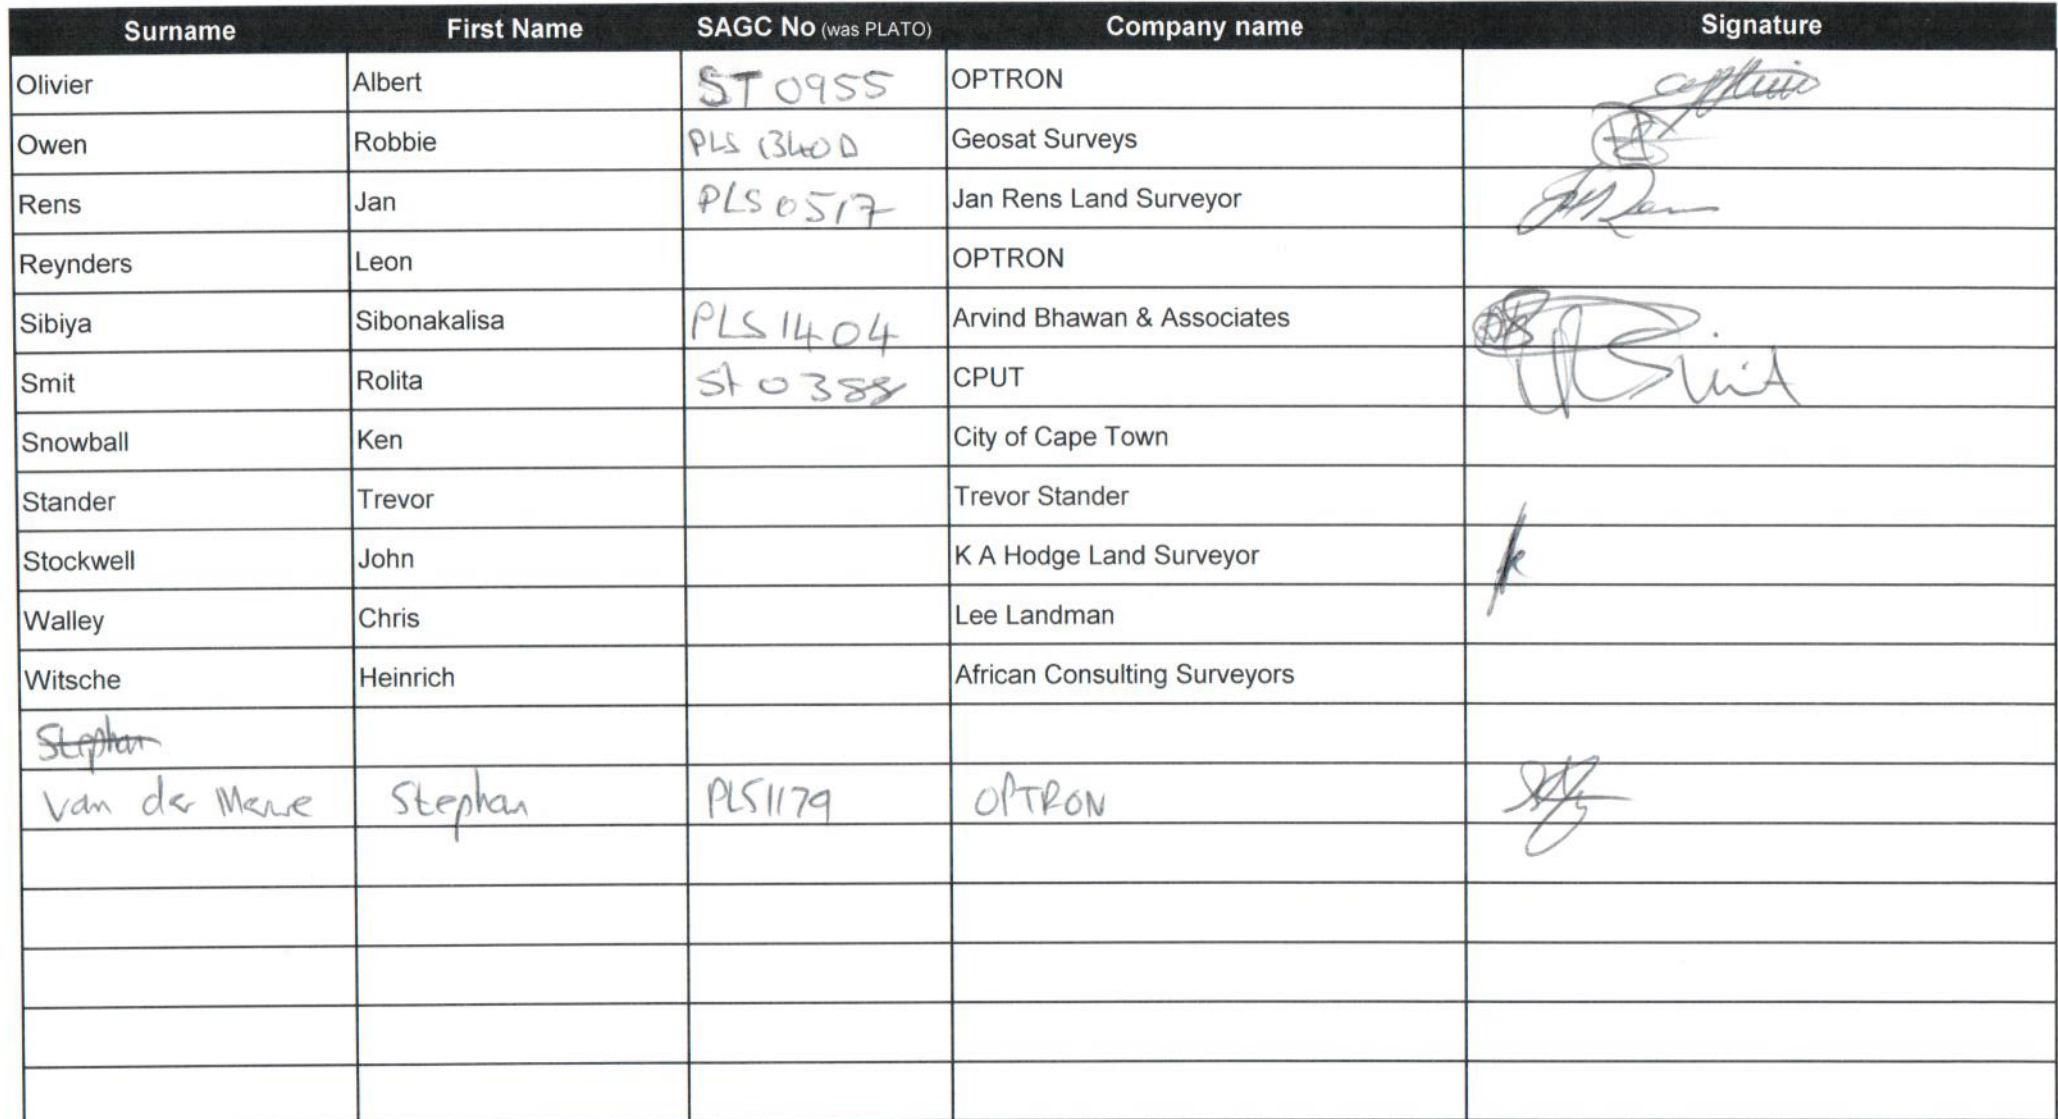 Surname First Name SAGC No (was PLATO) Company name Signature
Olivier Albert ST 0955 OPTRON
Owen Robbie PLS 1340 D Geosat Surveys
Rens Jan PLS 0517 Jan Rens Land Surveyor
Reynders Leon OPTRON
Sibiya Sibonakalisa PLS 1404 Arvind Bhawan & Associates
Smit Rolita St 0388 CPUT
Snowball Ken City of Cape Town
Stander Trevor Trevor Stander
Stockwell John K A Hodge Land Surveyor
Walley Chris Lee Landman
Witsche Heinrich African Consulting Surveyors
Stephan
Van der Merwe Stephan PLS1179 OPTRON